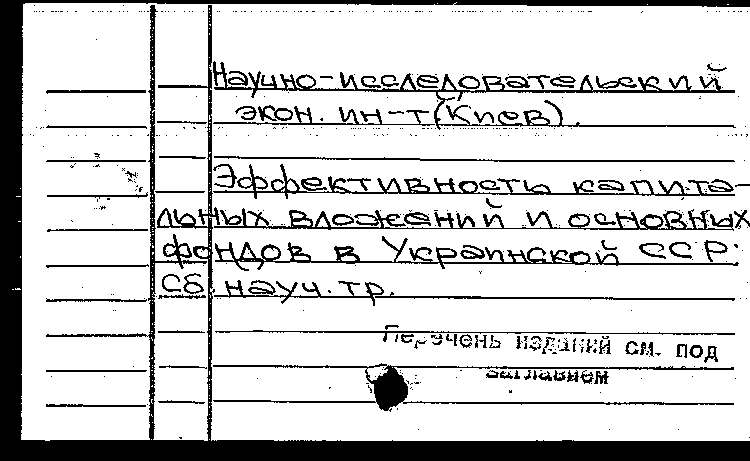 Научно-исследовательский
экон. ин-т (Киев).
Эффективность капита-
льных вложений и основных
фондов в Украинской ССР:
Сб. науч. тр.
Перечень изданий см. под
заглавием